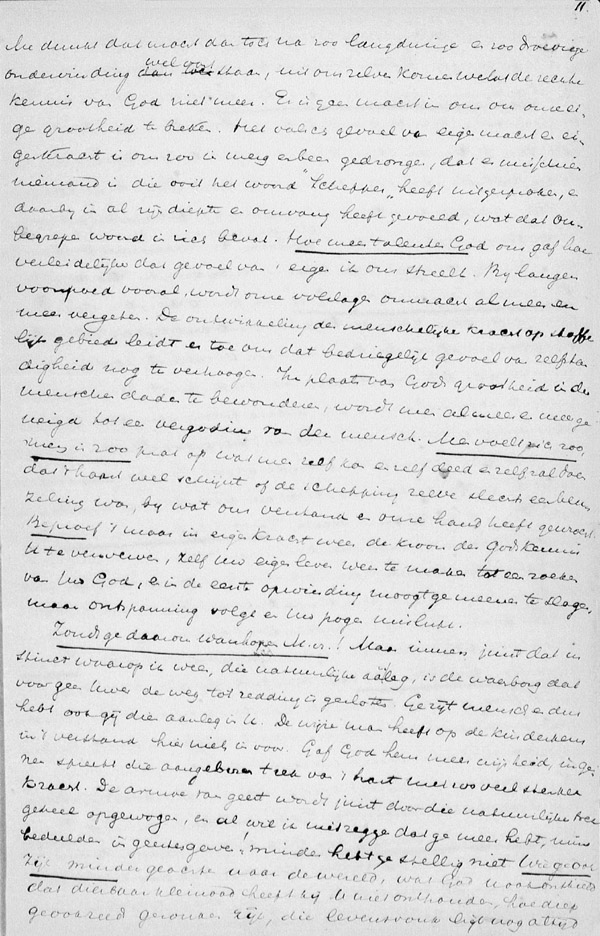 11.
Me dunkt dat moest dan toch na zoo langdurige en zoo droevige
ondervinding wel vast staan, uit ons zelven komen we tot de rechte
kennis van God niet meer. Er is geen macht in ons om onze
grootheid te breken. Het valsch gevoel van eigen macht en ei-
gen kracht is ons zoo in merg en been gedrongen, dat er misschien
niemand is die ooit het woord "Schepper" heeft uitgesproken, en
daarbij in al zijn diepte en omvang heeft gevoeld, wat dat on-
begrepen woord in zich bevat. Hoe meer talenten God ons gaf hoe
verleidelijker dat gevoel van 't eigen ik ons streelt. Bij langen
voorspoed vooral, wordt onze volslagen onmacht al meer en
meer vergeten. De ontwikkeling der menschelijke kracht op stoffe-
lijk gebied leidt er toe om dat bedriegelijk gevoel van zelfstan-
digheid nog te verhoogen. In plaats van Gods grootheid in der
menschen daden te bewonderen, wordt men al meer en meer ge-
neigd tot een vergoding van den mensch. Men voelt zich zoo,
men is zoo prat op wat men zelf kan en zelf deed en zelf zal doen
dat 't haast wel schijnt of de schepping zelve slechts een beu-
zeling was, bij wat ons verstand en onze hand heeft gewrocht.
Beproef 't maar in eigen kracht weer de kroon der Godskennis
U te verwerven, zelf uw eigen leven weer te maken tot een zoeken
van Uw God, en in de eerste opwinding moogt ge meenen te slagen,
maar ontspanning volgt en Uw pogen mislukt.
Zoudt ge daarom wanhopen M. H.! Maar immers juist dat in-
stinct waarop ik wees, die natuurlijke aanleg, is de waarborg dat
voor geen Uwer de weg tot redding is gesloten. Ge zijt mensch en dus
hebt ook gij die aanleg in U. De wijze man heeft op de kinderkens
in 't verstand hier niets in voor. Gaf God hem meer wijsheid, in
spreekt die aangeboren trek van 't hart met zoo veel sterker
kracht. De armoe van geest wordt juist door die natuurlijke trek
geheel opgewogen, en al wil ik niet zeggen dat ge meer hebt, min
bedeelden in geestesgaven! minder hebt ge stellig niet
Zijt minder geacht naar de wereld, wat God
dat dierbaar kleinood heeft hij U niet onthouden, hoe diep
gezonken ge zijt, die levensvonk ligt nog altijd